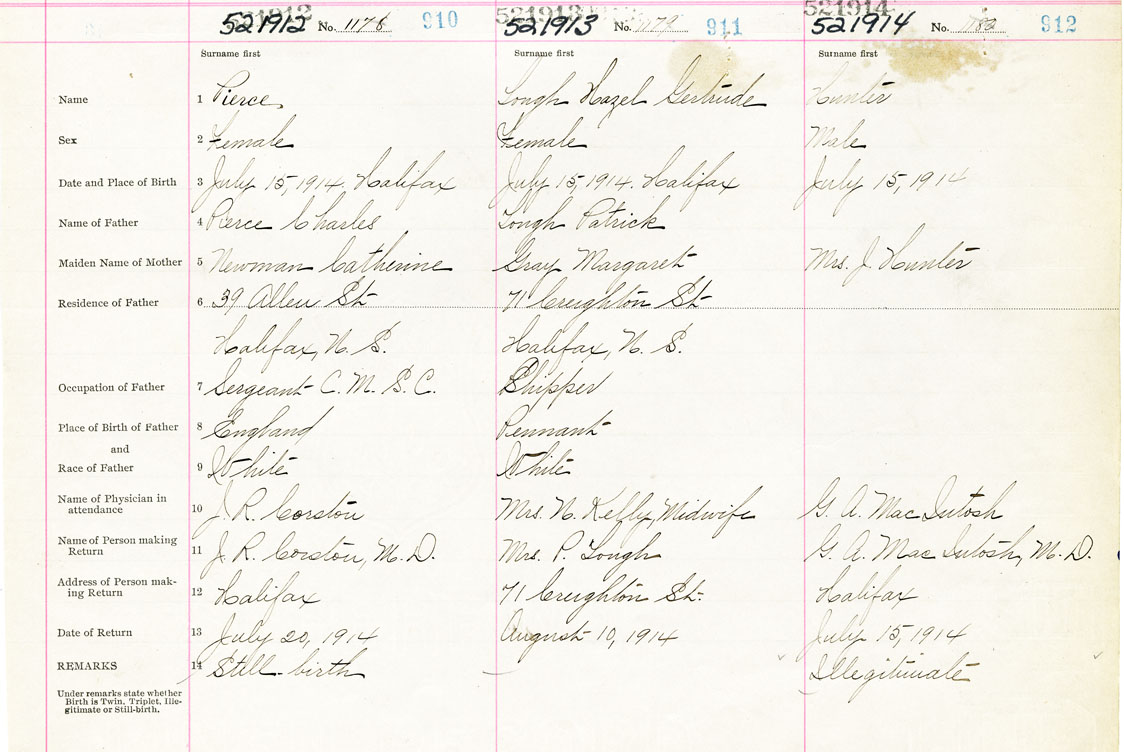 521912 521913 521914
521912 No. 1178 910 521913 No. 1179 911 521914 No. 1180 912
Surname first Surname first Surname first
Name 1 Pierce Lough Hazel Gertrude Hunter
Sex 2 Female Female Male
Date and Place of Birth 3 July 15, 1914. Halifax July 15, 1914. Halifax July 15, 1914
Name of Father 4 Pierce Charles Lough Patrick
Maiden Name of Mother 5 Newman Catherine Gray Margaret Mrs. J. Hunter
Residence of Father 6 39 Allen St 71 Creighton St
Halifax, N. S. Halifax, N. S.
Occupation of Father 7 Sergeant C. M. S. C. Shipper
Place of Birth of Father 8 England Pennant
and
Race of Father 9 White White
Name of Physician in
attendance 10 J. R. Corston Mrs. N. Kelly, Midwife G. A. MacIntosh
Name of Person making
Return 11 J. R. Corston, M. D. Mrs. P. Lough G. A. MacIntosh, M. D.
Address of Person mak-
ing Return 12 Halifax 71 Creighton St. Halifax
Date of Return 13 July 20, 1914 August 10, 1914 July 15, 1914
REMARKS 14 Still-birth Illegitimate
Under remarks state whether
Birth is Twin, Triplet, Ille-
gitimate or Still-birth.